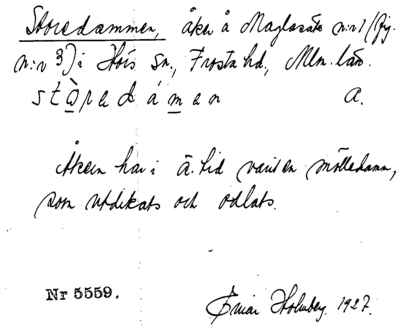 Storedammen, åker å Maglasäte n:r 1 (fig.
n:r 3) i Hörs sn., Frosta hd, Mlm. län.
stòredámen a.
Åkern har i ä. tid varit en mölledamm,
som utdikats och odlats.
Nr 5559.
Einar Holmberg. 1927.